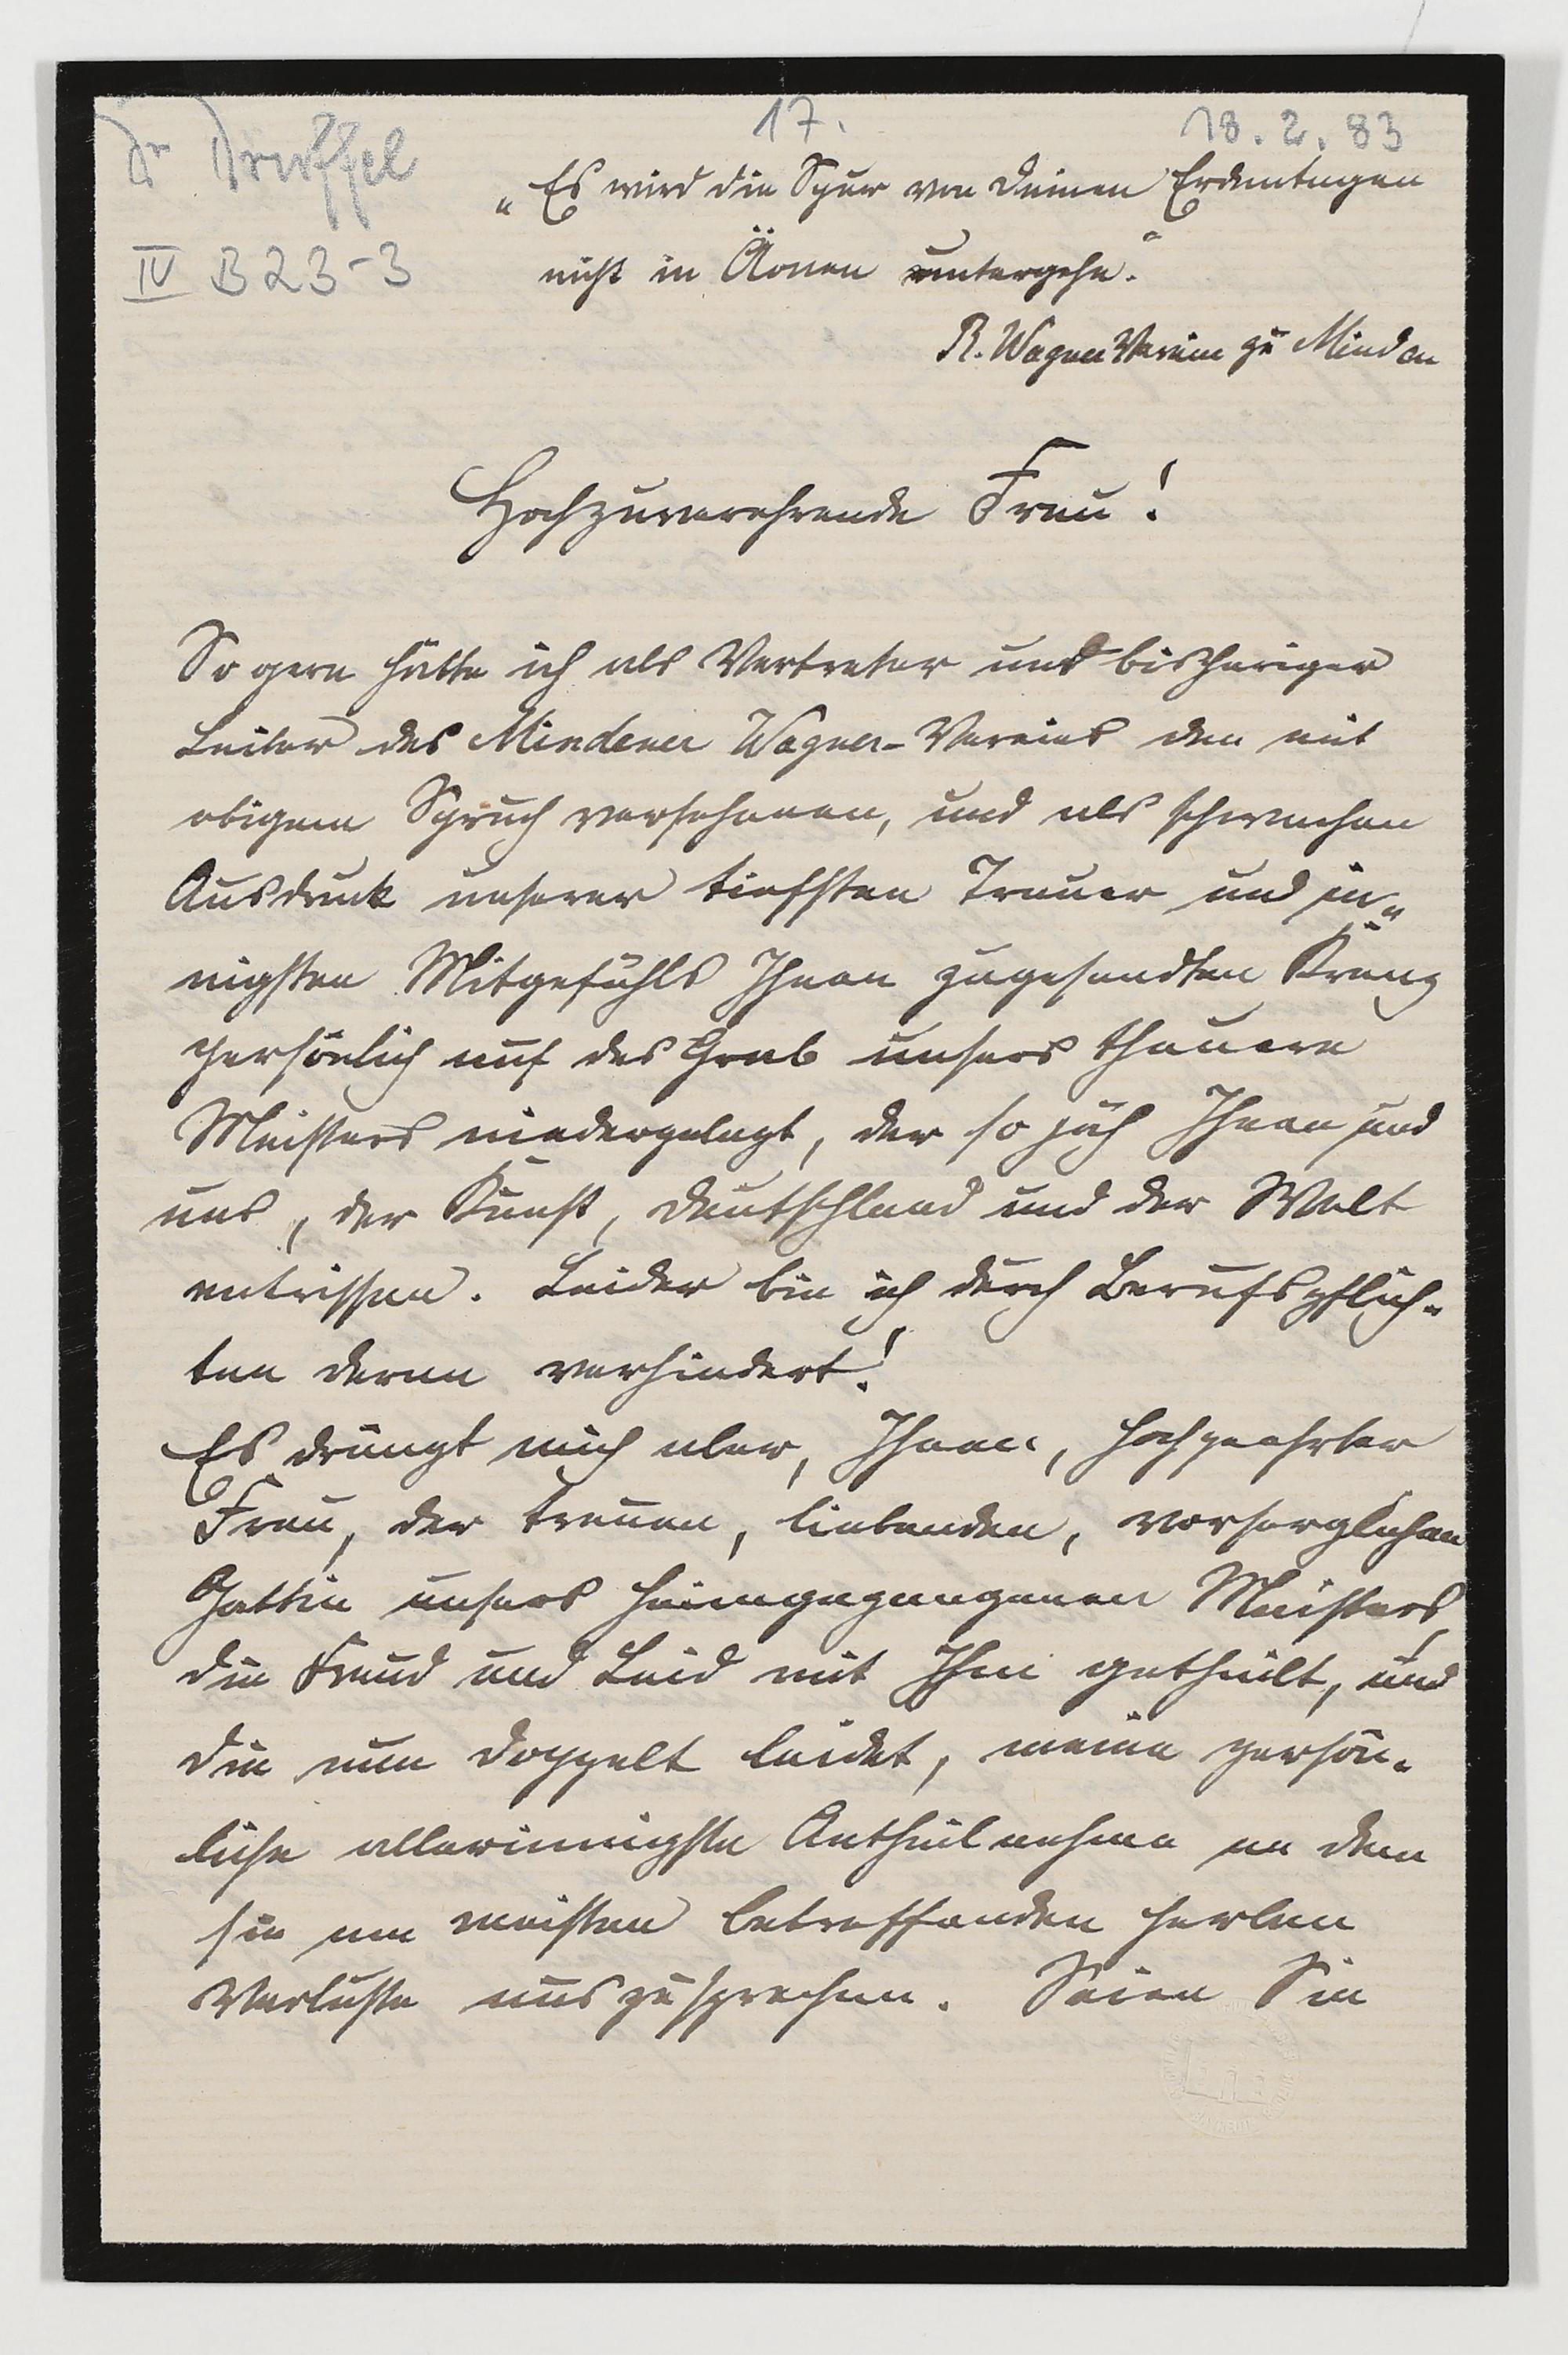 Dr Druffel
17.
18.2.83
IV B 23-3
„Es wird die Spur von Deinen Erdentagen
nicht in Äonen untergehn."
R. Wagner Verein zu Minden
Hochzuverehrende Frau!
So gern hätte ich als Vertreter und bisheriger
Leiter des Mindener Wagner-Vereins den mit
obigem Spruch versehenen, und als schwachen
Ausdruck unserer tiefsten Trauer und in„
nigsten Mitgefühls Ihnen zugesandten Kranz
persönlich auf das Grab unsers theuern
Meisters niedergelegt, der so jäh Ihnen und
uns, der Kunst, Deutschland und der Welt
entrissen. Leider bin ich durch Berufspflich-
ten daran verhindert!
Es drängt mich aber, Ihnen, hochgeehrter
Frau, der treuen, liebenden, vorsorglichen
Gattin unsers heimgegangenen Meisters,
die Freud und Leid mit Ihm getheilt, und
die nun doppelt leidet, meine persön-
liche allerinnigste Antheilnahme an dem
sie am meisten betreffenden herben
Verluste auszusprechen. Seien Sie